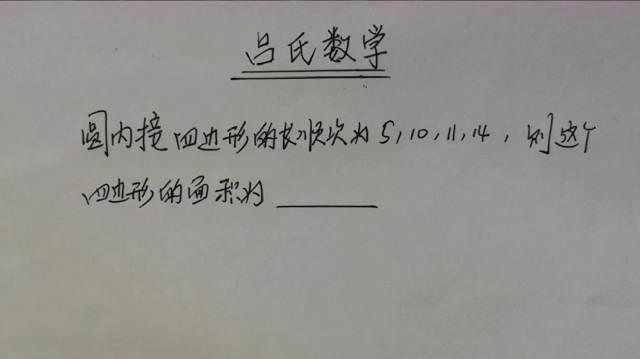 吕氏数学
圆内接四边形的长顺次为5,10,11,14,则这个
四边形的面积为